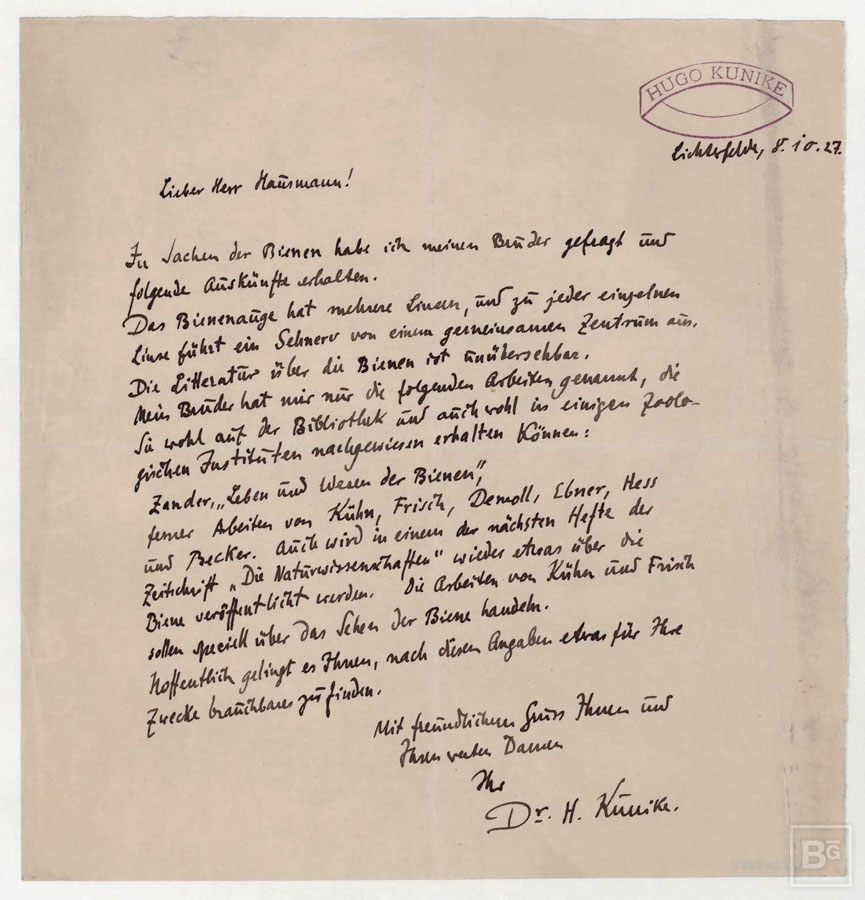 HUGO KUNIKE
Lichterfelde, 8.10.27.
Lieber Herr Hausmann!
In Sachen der Bienen habe ich meinen Bruder gefragt und
folgende Auskünfte erhalten.
Das Bienenauge hat mehrere Linsen, und zu jeder einzelnen
Linse führt ein Sehnerv von einem gemeinsamen Zentrum aus.
Die Litteratur über die Bienen ist unübersehbar.
Mein Bruder hat mir nur die folgenden Arbeiten genannt, die
Sie wohl auf der Bibliothek und auch wohl in einigen Zoolo-
gischen Instituten nachgewiesen erhalten können:
Zander, „Leben und Wesen der Bienen",
ferner Arbeiten von Kühn, Frisch, Demoll, Ebner, Hess
und Becker. Auch wird in einem der nächsten Hefte der
Zeitschrift „Die Naturwissenschaften" wieder etwas über die
Biene veröffentlicht werden. Die Arbeiten von Kühn und Frisch
sollen speciell über das Sehen der Biene handeln.
Hoffentlich gelingt es Ihnen, nach diesen Angaben etwas für Ihre
Zwecke brauchbares zu finden.
Mit freundlichem Gruss Ihnen und
Ihren werten Damen
Ihr
Dr. H. Kunike.
BG